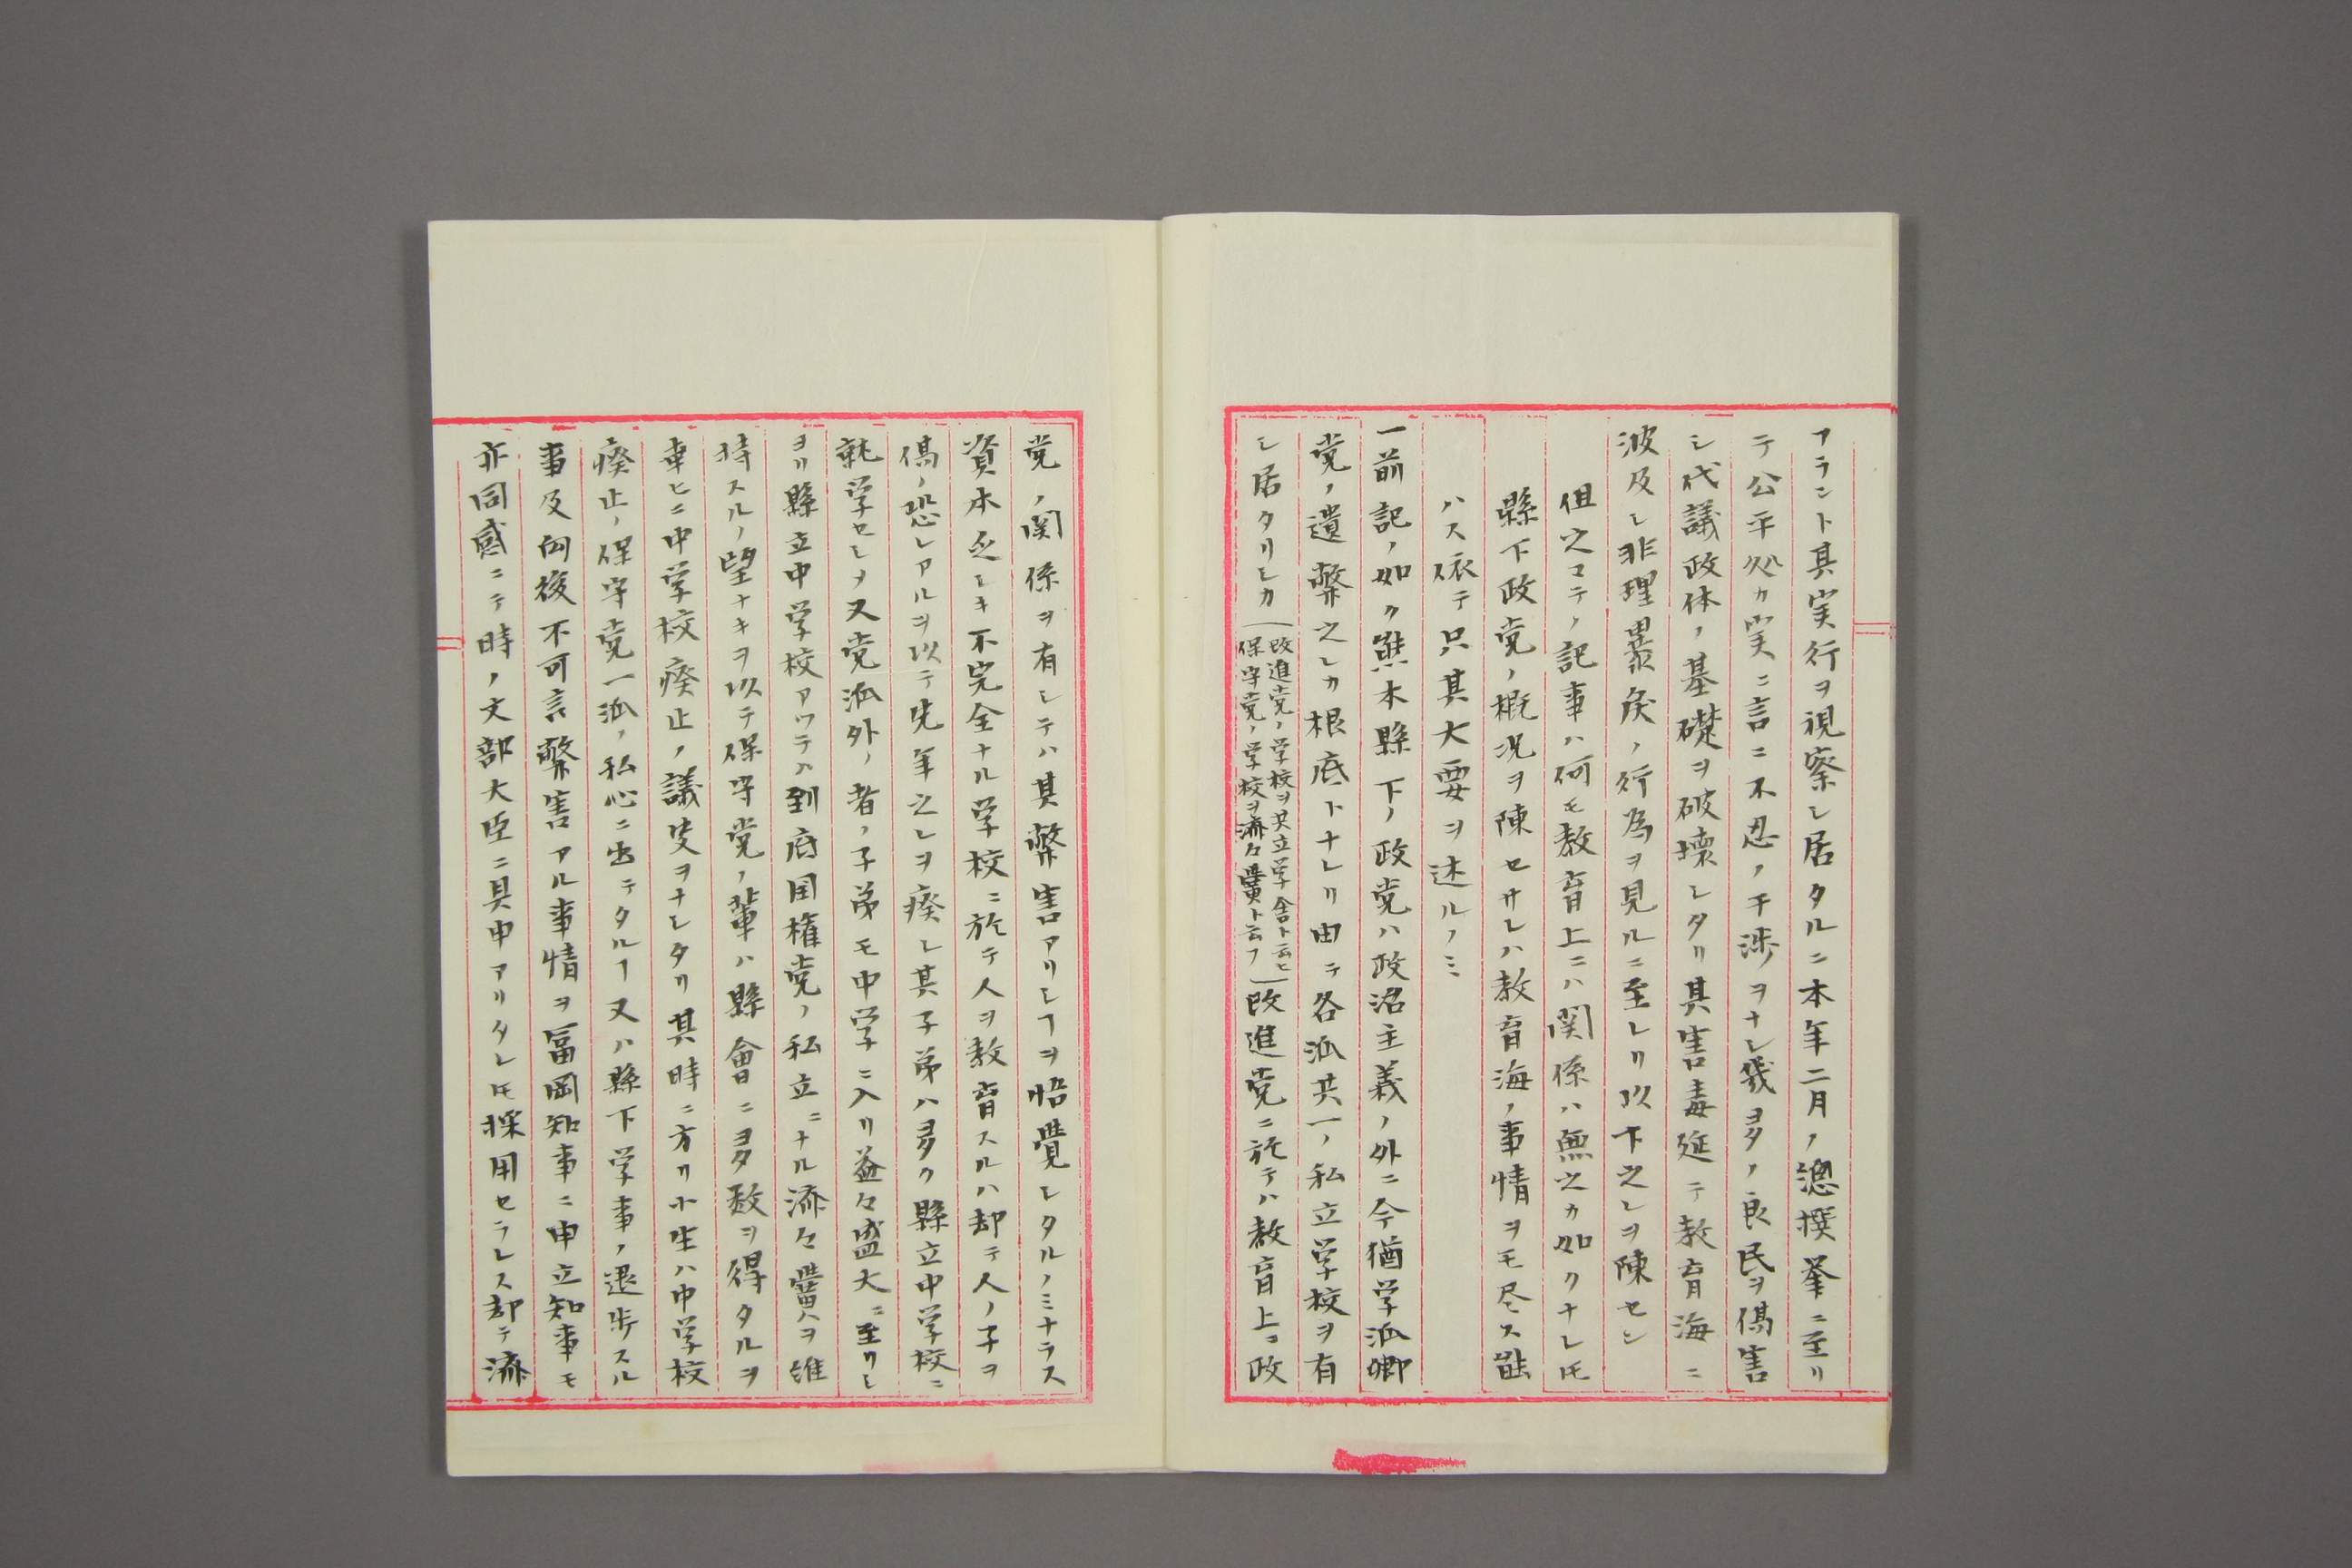 アラント其実行ヲ視察シ居タルニ本年二月ノ總撰挙ニ至リ
テ公平処カ実ニ言ニ不忍ノ干渉ヲナシ幾多ノ良民ヲ傷害
シ代議政体ノ基礎ヲ破壊シタリ其害毒延テ教育海ニ
波及シ非理暴戻ノ行為ヲ見ルニ至レリ以下之レヲ陳セン
但之マテノ記事ハ何モ教育上ニハ関係ハ無之カ如クナレ𪜈
縣下政党ノ概況ヲ陳セサレハ教育海ノ事情ヲモ尽ス能
ハス依テ只其大要ヲ述ルノミ
一前記ノ如ク熊本縣下ノ政党ハ政治主義ノ外ニ今猶学派郷
党ノ遺弊之レカ根底トナレリ由テ各派共一ノ私立学校ヲ有
シ居タリシカ(改進党ノ学校ヲ共立学舎ト云ヒ
保守党ノ学校ヲ済々黌ト云フ)改進党ニ於テハ教育上ニ政
党ノ関係ヲ有シテハ其弊害アリシヿヲ悟覺シタルノミナラス
資本乏シキ不完全ナル学校ニ於テ人ヲ教育スルハ却テ人ノ子ヲ
傷ノ恐レアルヲ以テ先年之レヲ癈シ其子弟ハ多ク縣立中学校ニ
就学セシメ又党派外ノ者ノ子弟モ中学ニ入リ益々盛大ニ至リシ
ヨリ縣立中学校アツテハ到底国権党ノ私立ニナル済々黌ヲ維
持スルノ望ナキヲ以テ保守党ノ輩ハ縣會ニ多数ヲ得タルヲ
幸ヒニ中学校癈止ノ議决ヲナシタリ其時ニ方リ小生ハ中学校
癈止ノ保守党一派ノ私心ニ出テタルヿ又ハ縣下学事ノ退歩スル
事及向後不可言弊害アル事情ヲ富岡知事ニ申立知事モ
亦同感ニテ時ノ文部大臣ニ具申アリタレ𪜈採用セラレス却テ済